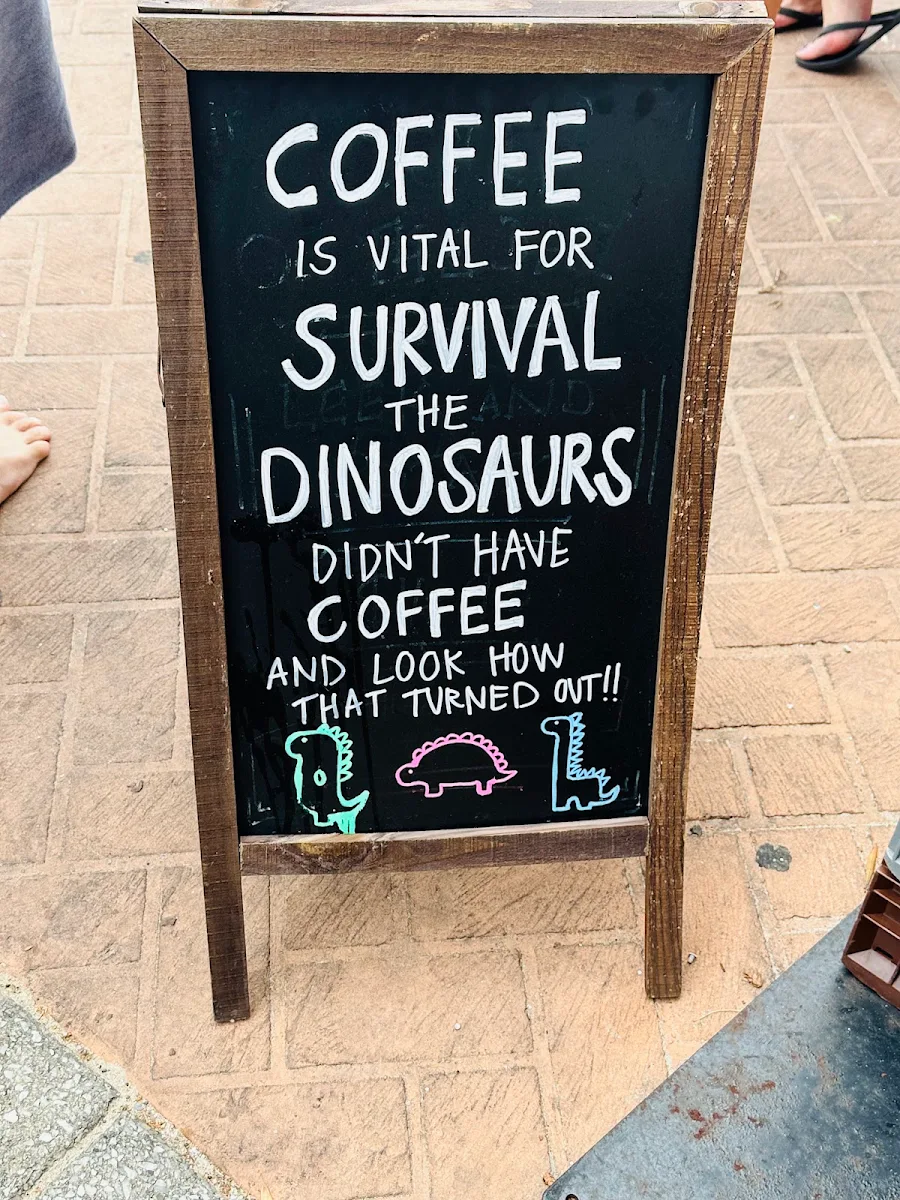 COFFEE
IS VITAL FOR
SURVIVAL
THE
DINOSAURS
DIDN'T HAVE
COFFEE
AND LOOK HOW
THAT TURNED OUT!!